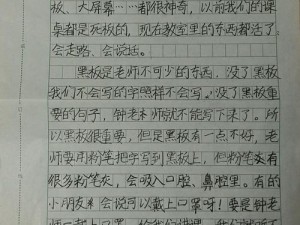 板、大屏幕……都很神奇，以前我们的课
桌都是死板的，现在教室里的东西都活了
会走路、会说话。
黑板是老师不可少的东西，没了黑板
我们不会写的字照样不会写。没了黑板重
要的句子，钟老师就不能写下来了。所
以黑板很重要，但是黑板有一点不好，老
师要用粉笔把字写到黑板上，但粉笔灰有
很多粉笔灰，会吸入口腔、鼻腔里。有的
小朋友会说可以戴上口罩呀！要是钟老
师一戴上口罩，给我们讲课，我们就听不